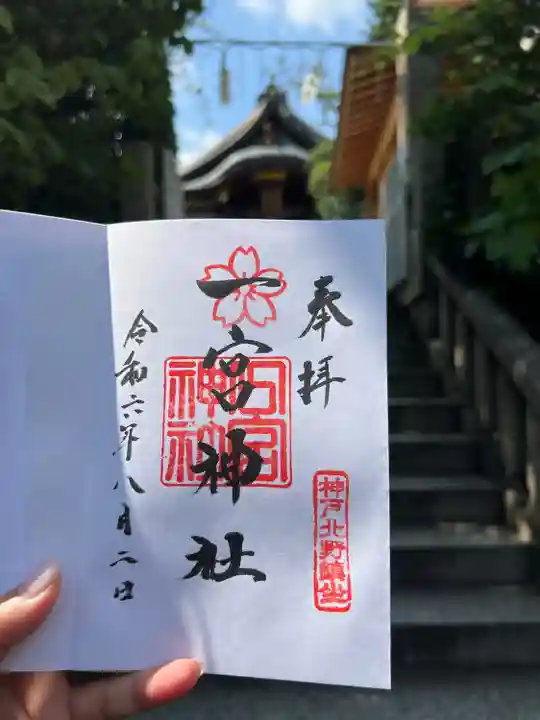 奉拝
神戸北野鎮坐
一宮神社
一宮神社
令和六年八月二日